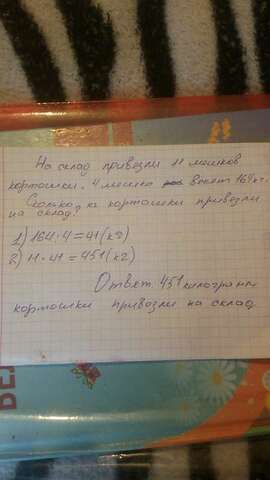 На склад привезли 11 мешков
кортошки. 4 мешка весят 164 кг.
Сколько кг кортошки привезли
на склад?
1) 164 : 4 = 41 (кг)
2) 11 · 41 = 451 (кг)
Ответ. 451 килограмм
кортошки привозли на склад